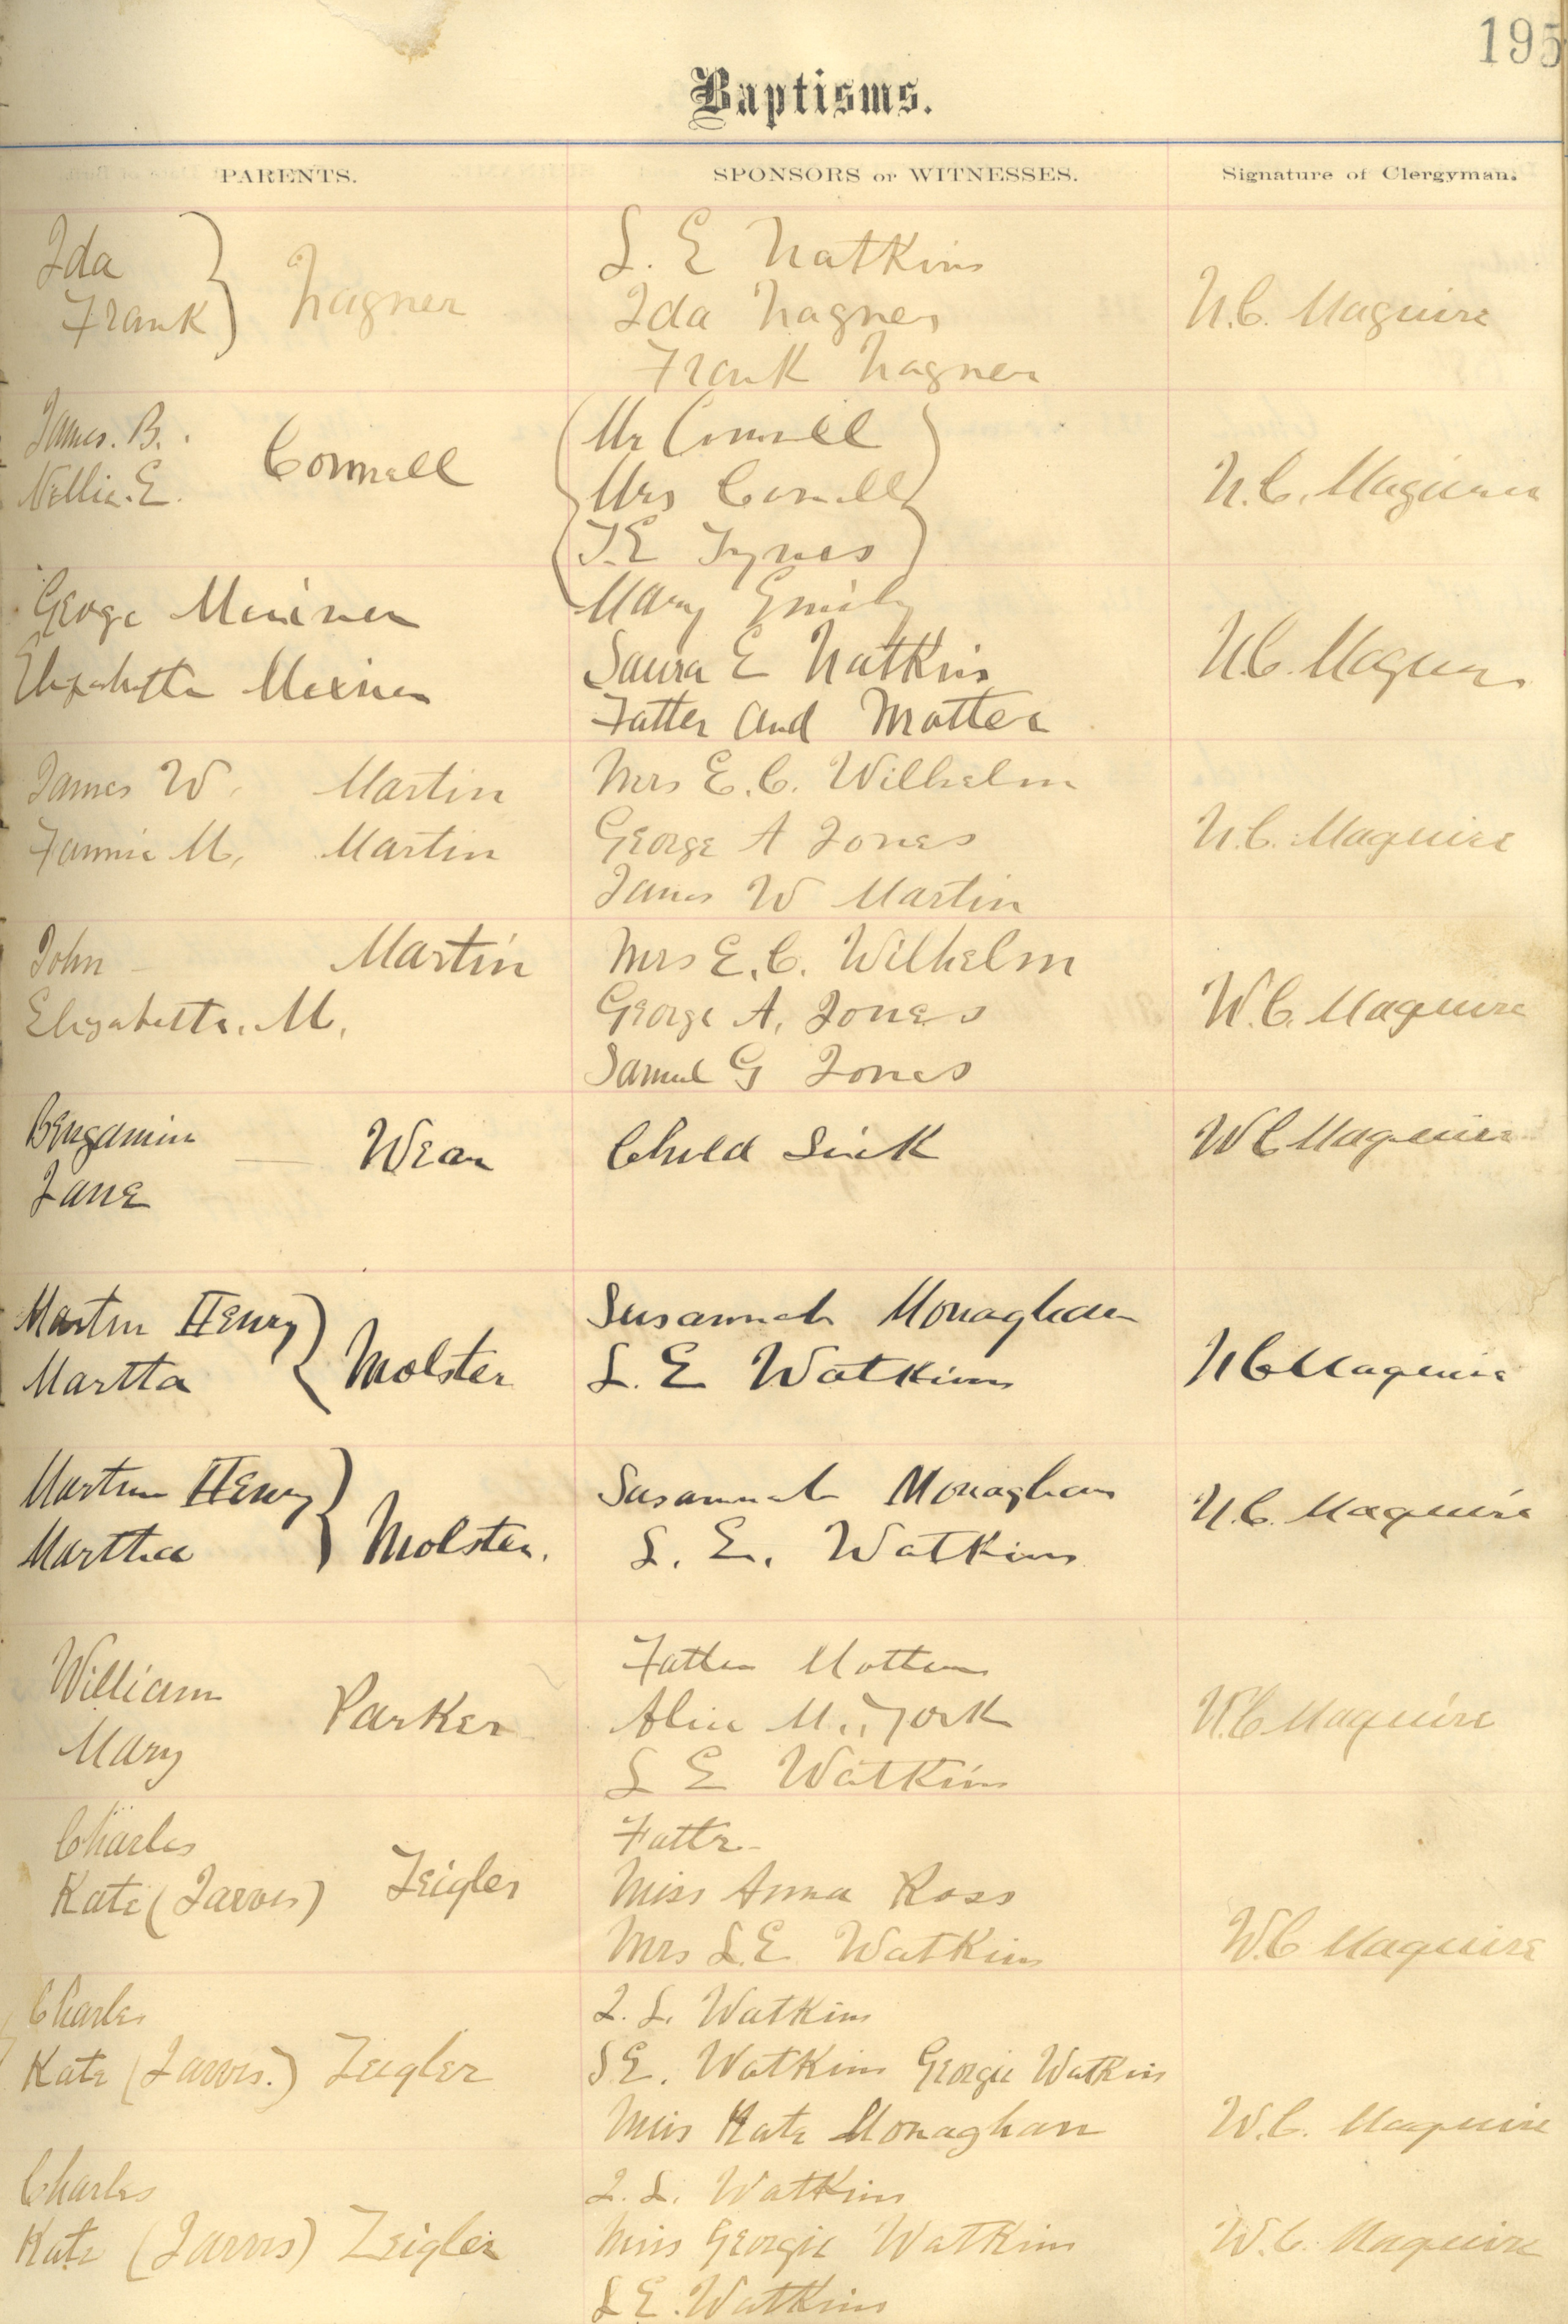 195
Baptisms.
PARENTS. SPONSORS or WITNESSES. Signature of Clergyman.
Ida
Frank } Wagner
L. E Watkins
Ida Wagner
Frank Wagner
W.C. Maguire
James. B.
Nellie. E. Connell
Mr Connell
Mrs Connell
T.E Tynes
Mary Emily
W.C. Maguire
George Meixner
Elizabeth Meixner
Laura E Watkins
Father and Mother
W.C. Maguire
James W. Martin
Fannie M. Martin
Mrs E.C. Wilhelm
George A Jones
James W Martin
W.C. Maguire
John Martin
Elizabeth. M.
Mrs E.C. Wilhelm
George A. Jones
Samuel G Jones
W.C. Maguire
Bengamin
Jane — Wear
Child Sick
W C Maguire
Martin Henry
Martha } Molster
Susannah Monaghan
L. E Watkins
W C Maguire
Martin Henry
Martha } Molster.
Susannah Monaghan
L. E. Watkins
W.C. Maguire
William
Mary Parker
Father Mother
Alice M. York
L E Watkins
W.C Maguire
Charles
Kate (Jarvis) Zeigler
Father
Miss Anna Ross
Mrs L.E Watkins
W.C Maguire
Charles
Kate (Jarvis.) Zeigler
I. L. Watkins
L E. Watkins Georgie Watkins
Miss Kate Monaghan
W.C. Maguire
Charles
Kate (Jarvis) Zeigler
I. L. Watkins
Miss Georgie Watkins
L E. Watkins
W.C. Maguire